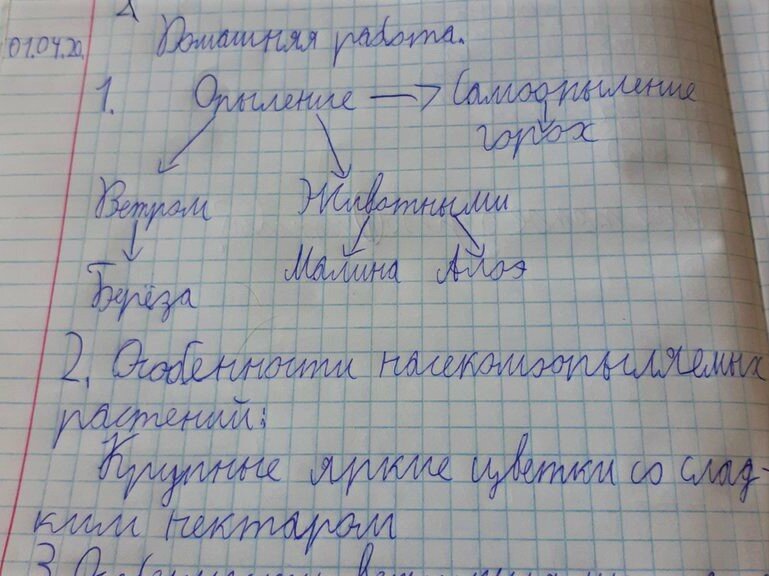 01.04.20.
Домашняя работа.
1. Опыление → Самоопыление
горох
Ветром Животными
Берёза Малина Алоэ
2. Особенности насекомоопыляемых
растений:
Крупные яркие цветки со слад-
ким нектаром
3. Особенности